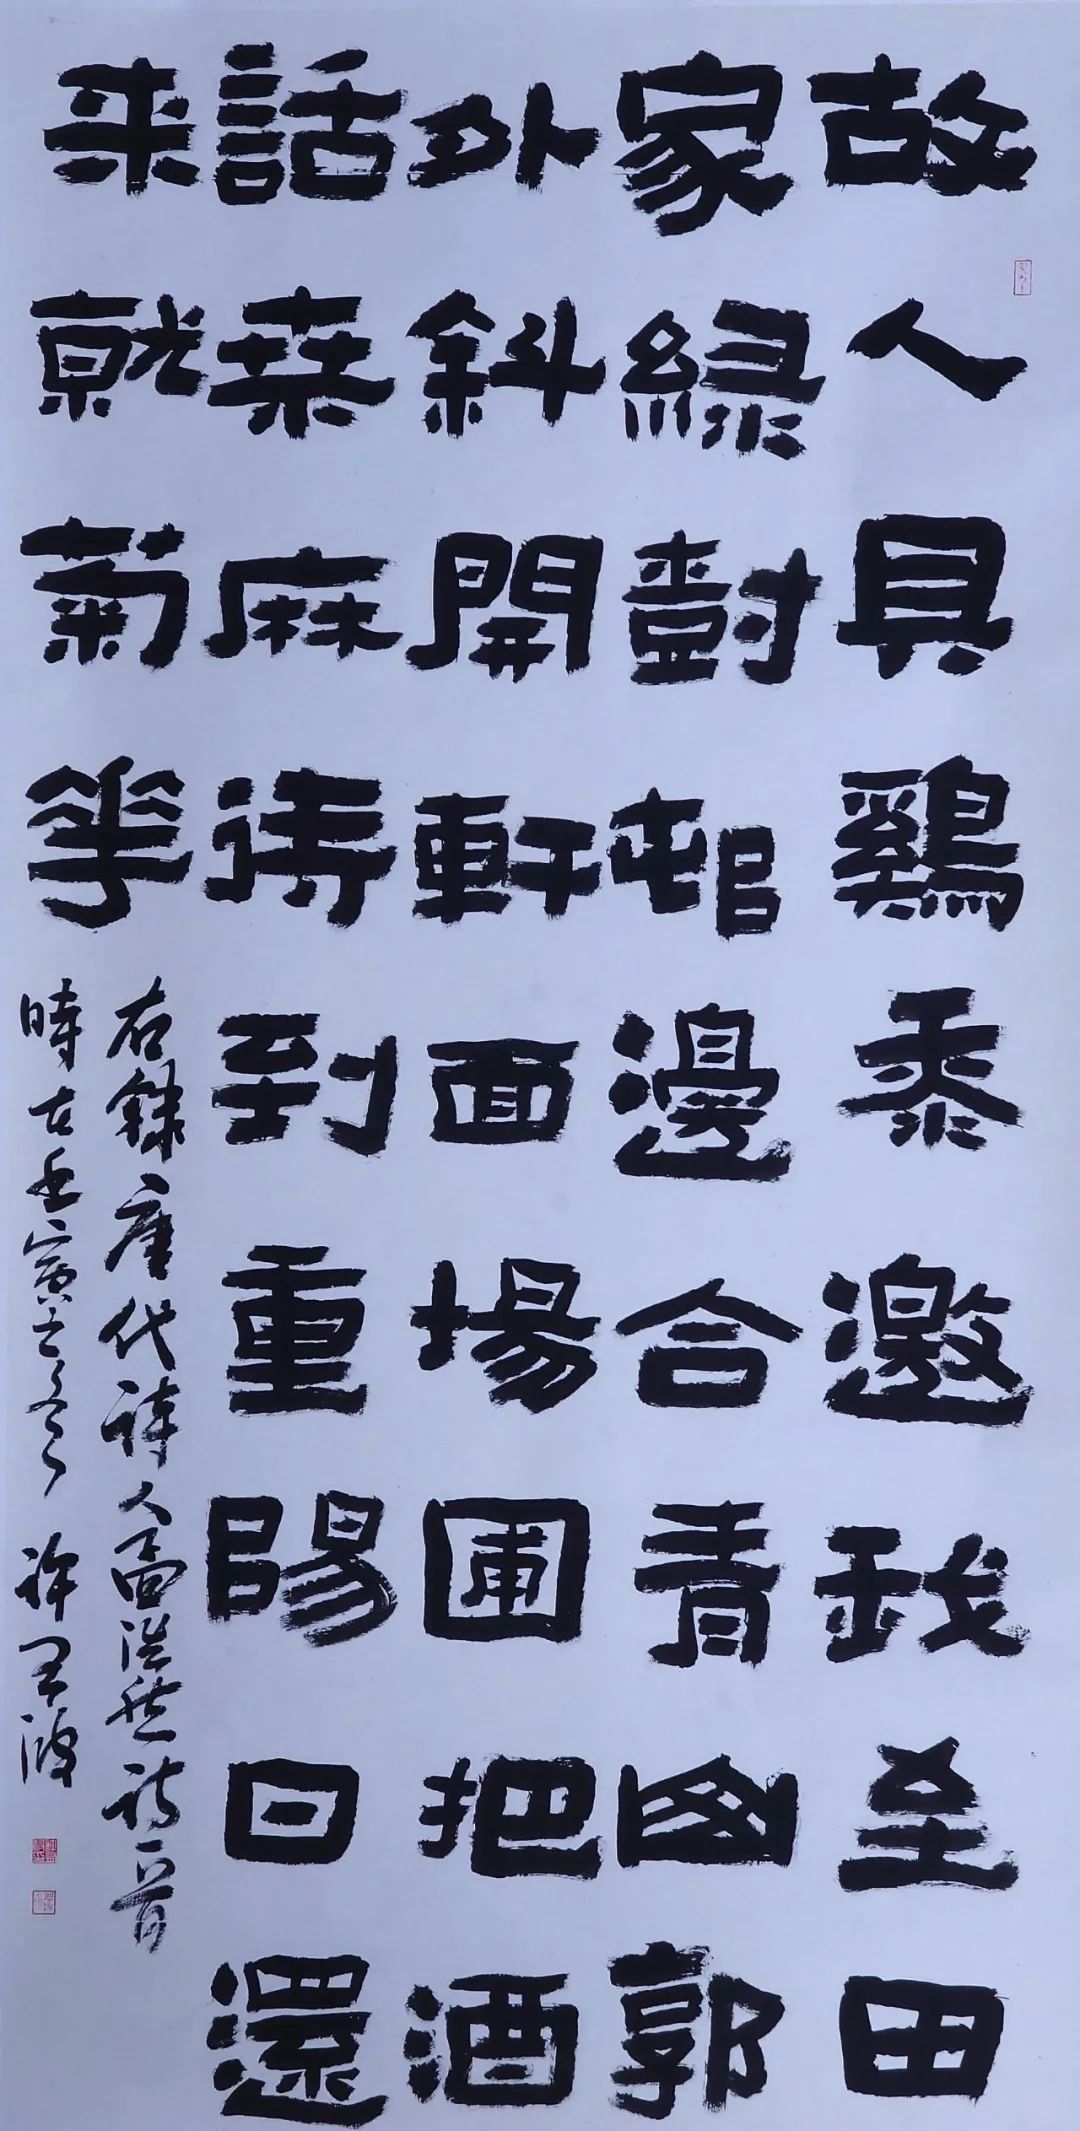 故人具鷄黍邀我至田
家綠樹邨邊合青山郭
外斜開軒面場圃把酒
話桒麻待到重陽日還
来就菊華
右録唐代詩人孟浩然詩一首
時在壬寅之冬 許波